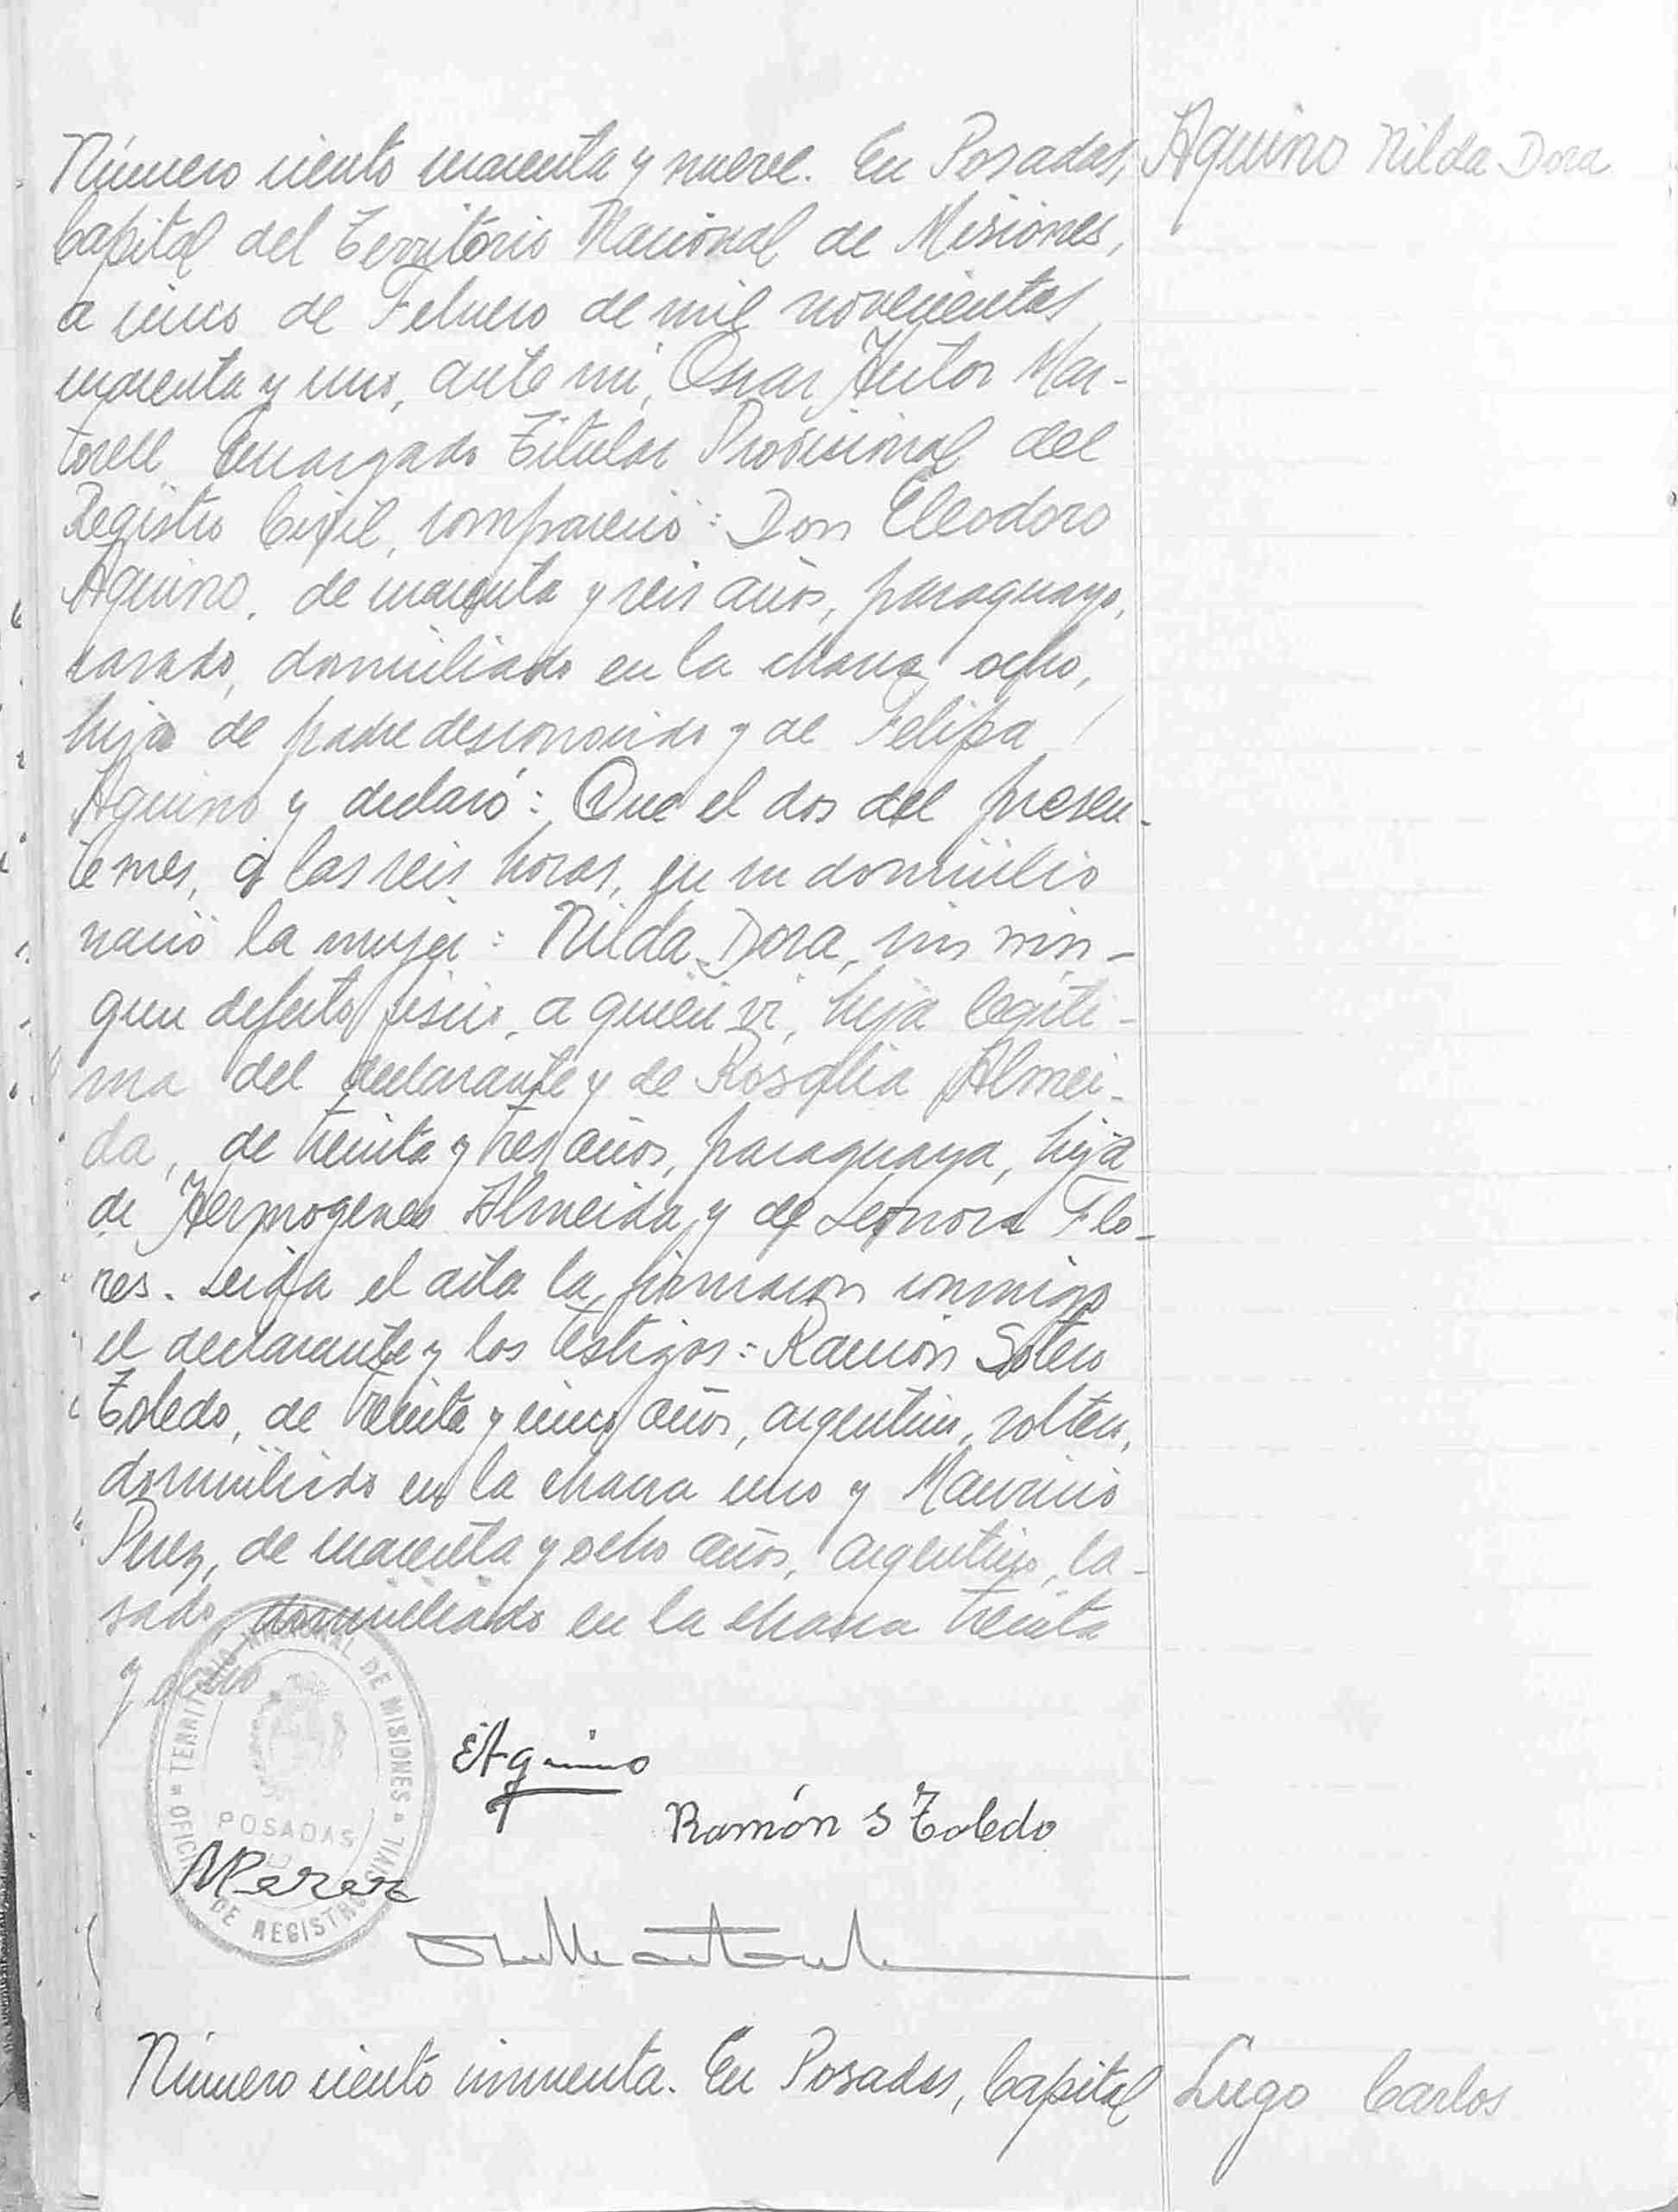 Número ciento cuarenta y nueve. En Posadas, Aquino Nilda Dora
Capital del Territorio Nacional de Misiones,
a cinco de Febrero de mil novecientos
cuarenta y uno, ante mi, Oscar Hector Mar-
torell Encargado Titular Provisional del
Registro Civil, compareció: Don Eleodoro
Aquino, de cuarenta y seis años, paraguayo,
casado, domiciliado en la chacra ocho,
hijo de padre desconocido y de Felipa
Aquino y declaró: Que el dos del presen-
te mes, a las seis horas, en su domicilio
nació la mujer: Nilda Dora, sin nin-
gun defecto fisico, a quien vi, hija legiti-
ma del declarante y de Rosalia Almei-
da, de treinta y tres años, paraguaya, hija
de Hermogenes Almeida y de Leonora Flo-
res. Leida el acta la firmaron conmigo
el declarante y los testigos: Ramón Sotero
Toledo, de treinta y cinco años, argentino, soltero,
domiciliado en la chacra uno y Mauricio
Perez, de cuarenta y ocho años, argentino, ca-
sado, domiciliado en la chacra treinta
y ocho
TERRITORIO NACIONAL DE MISIONES
POSADAS
DE REGISTRO
EAquino
Ramón S Toledo
MPerez
Número ciento cincuenta. En Posadas, Capital Lugo Carlos